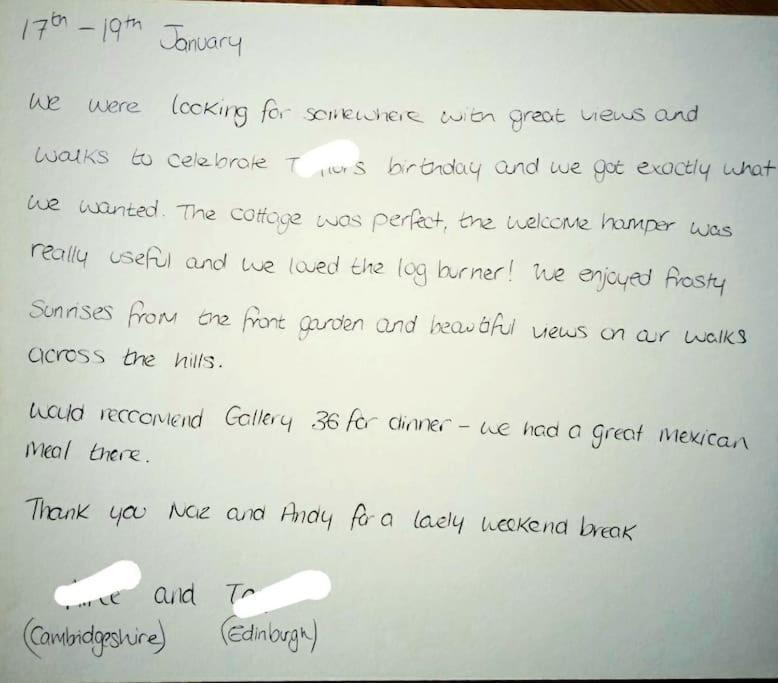 17th - 19th January
We were looking for somewhere with great views and
walks to celebrate birthday and we got exactly what
we wanted. The cottage was perfect, the welcome hamper was
really useful and we loved the log burner! We enjoyed frosty
Sunrises from the front garden and beautiful views on our walks
across the hills.
Would reccomend Gallery 36 for dinner - we had a great Mexican
meal there.
Thank you Naz and Andy for a lovely weekend break
and
(Cambidgeshire) (Edinburgh)